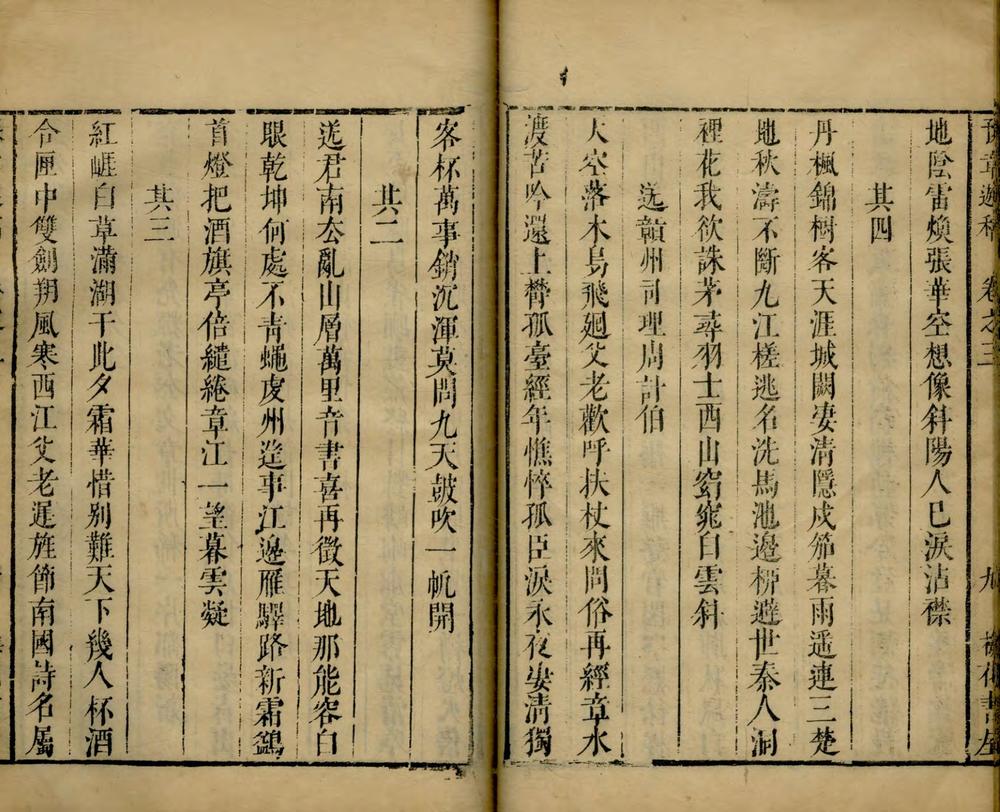 豫章遯稿 卷之三 九
地陰雷煥張華空想像斜陽人已淚沾襟
其四
丹楓錦樹客天涯城闕凄清隱戍笳暮雨遥連三楚
地秋濤不斷九江槎逃名洗馬池邊栁避世秦人洞
裡花我欲誅茅尋羽士西山窈窕白雲斜
送贛州司理周計伯
大空落木鳥飛廻父老歡呼扶杖來問俗再經章水
渡苦吟還上欝孤臺經年憔悴孤臣淚永夜凄清獨
客杯萬事銷沉渾莫問九天鼓吹一帆開
其二
送君南去亂山層萬里音書喜再徵天地那能容白
眼乾坤何處不青蠅虔州遄事江邊雁驛路新霜鷁
首燈把酒旗亭倍繾綣章江一望暮雲凝
其三
紅崕白草滿湖干此夕霜華惜别難天下幾人杯酒
合匣中雙劔朔風寒西江父老遲旌節南國詩名屬